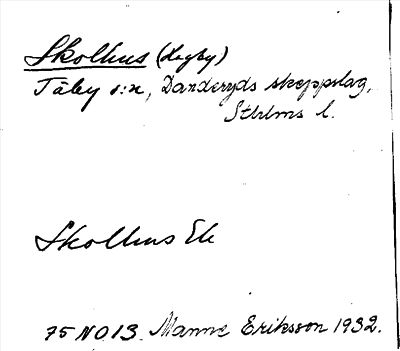 Skolhus (Hagby)
Täby s:n, Danderyds skeppslag,
Sthlms l.
Skolhus Ek
75 NO 13. Manne Eriksson 1932.